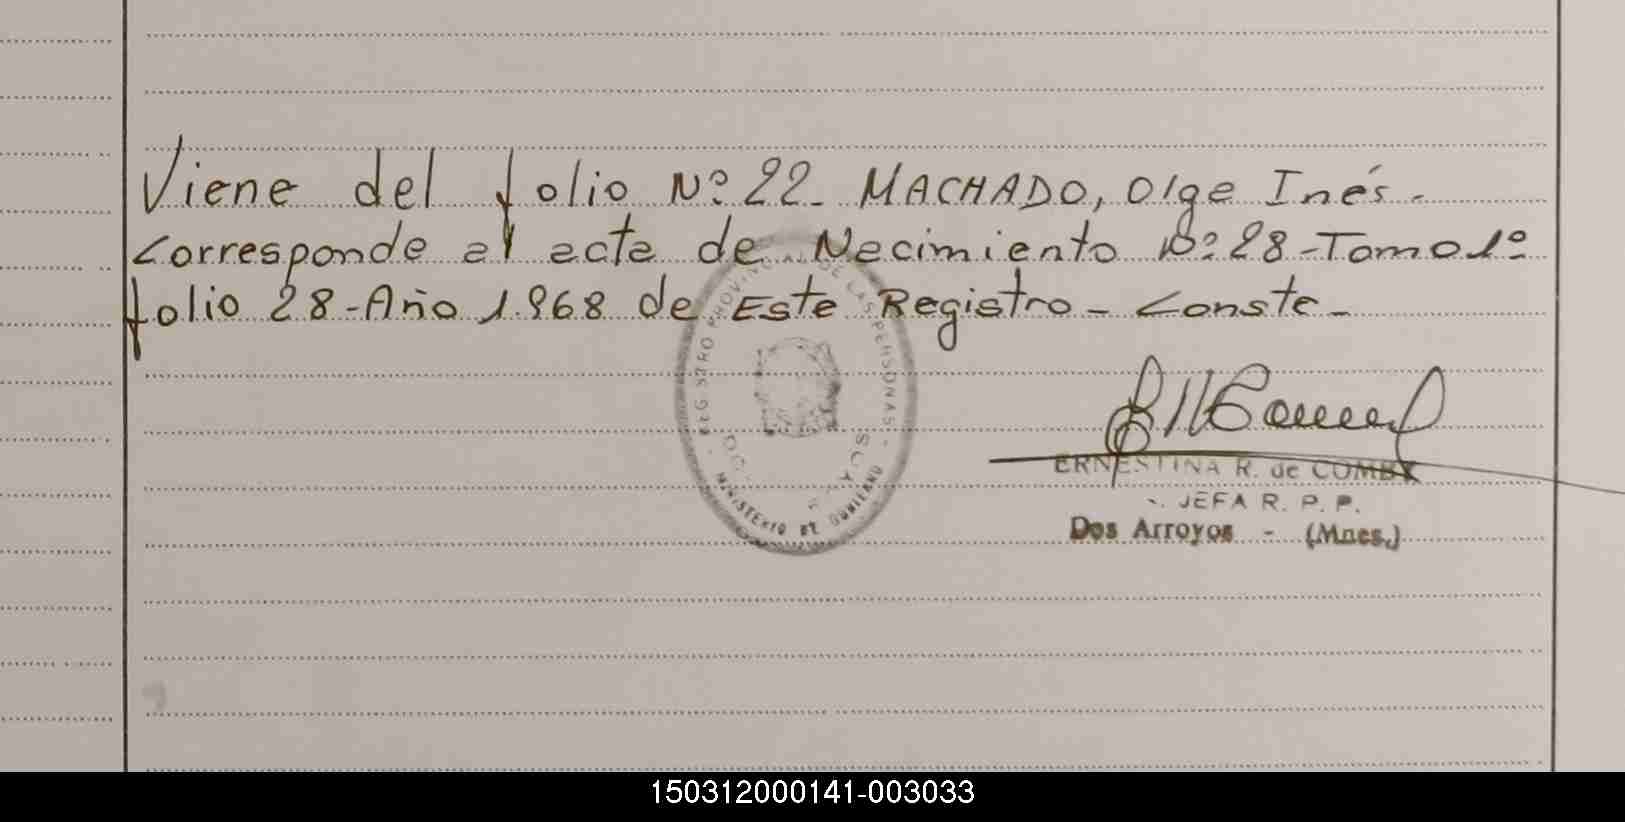 Viene del folio Nº 22 - MACHADO, Olga Inés -
Corresponde al acta de Nacimiento Nº 28 - Tomo 1º
folio 28 - Año 1.968 de Este Registro - Conste -
REGISTRO PROVINCIAL DE LAS PERSONAS
MINISTERIO DE GOBIERNO
ERNESTINA R. de COMBY
JEFA R. P. P.
Dos Arroyos - (Mnes.)
150312000141-003033